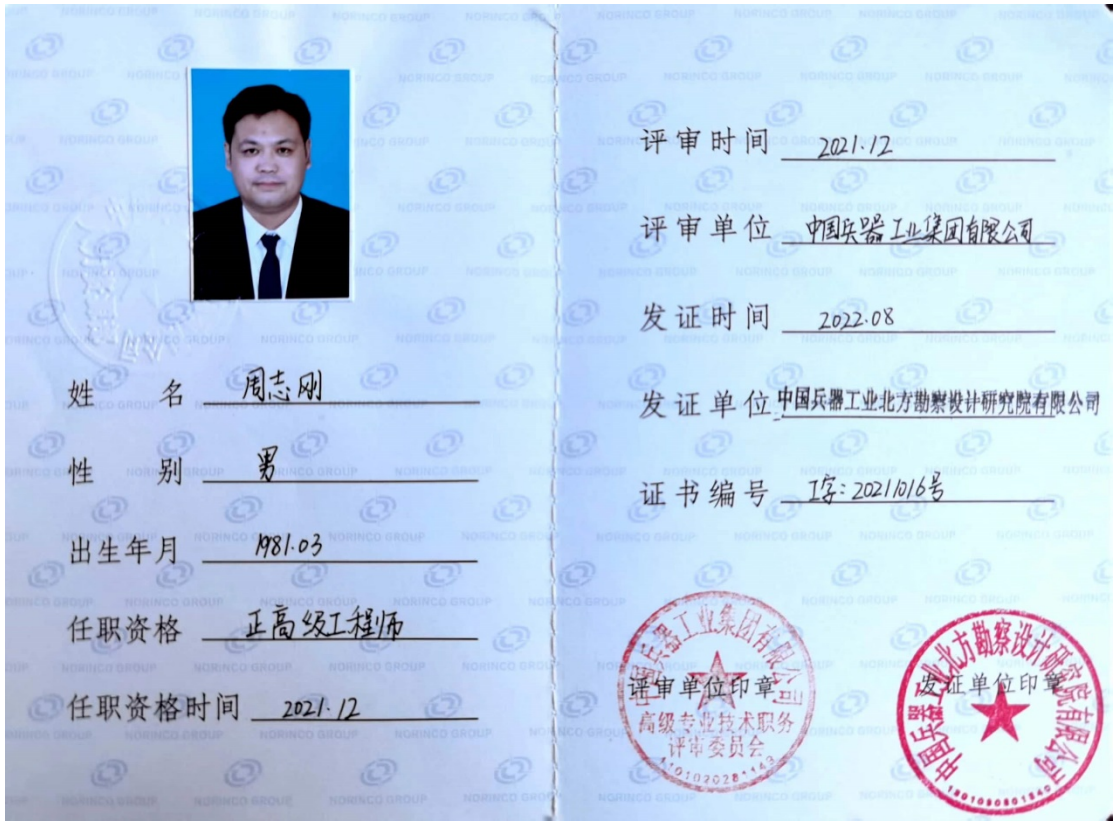 姓名 周志刚
性别 男
出生年月 1981.03
任职资格 正高级工程师
任职资格时间 2021.12
评审时间 2021.12
评审单位 中国兵器工业集团有限公司
发证时间 2022.08
发证单位 中国兵器工业北方勘察设计研究院有限公司
证书编号 工字:2021016号
评审单位印章
中国兵器工业集团有限公司
高级专业技术职务
评审委员会
发证单位印章
中国兵器工业北方勘察设计研究院有限公司
NORINCO GROUP